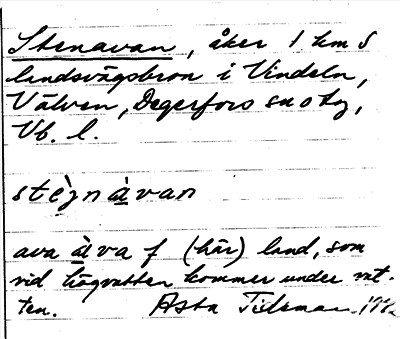 Stenavan, åker 1 km S
landsvägsbron i Vindeln,
Välven, Degerfors sn o tg,
Vb. l.
stè̩nàvan
ava àva f (här) land, som
vid högvatten kommer under vat-
ten. Asta Tideman